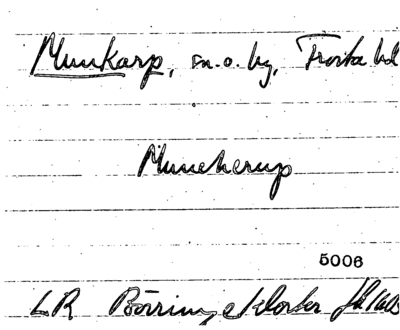 Munkarp, sn. o. by, Frosta hd
Muncherup
5006
LR Börringe kloster